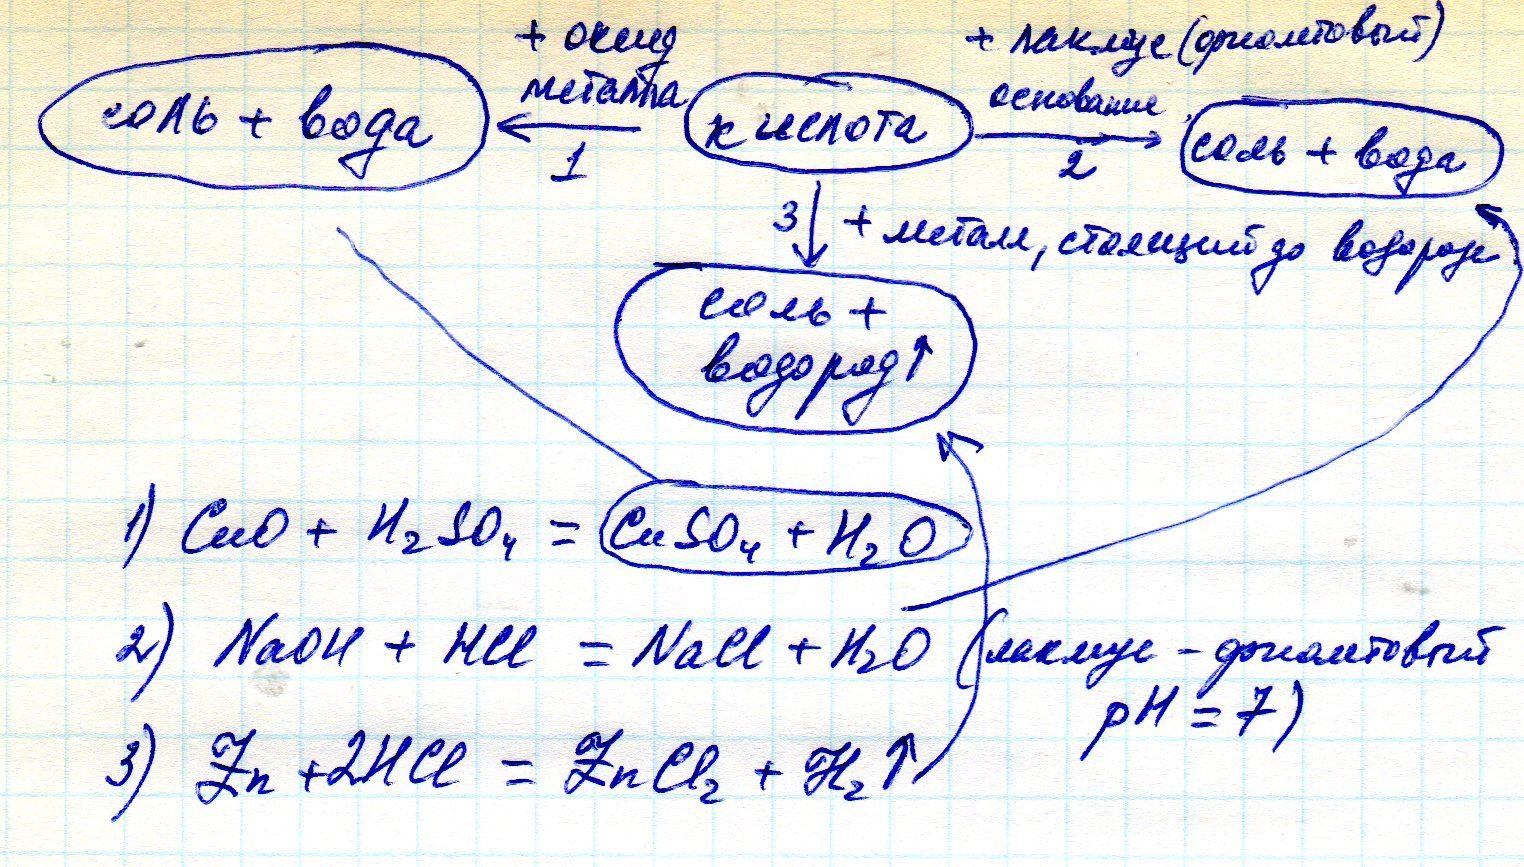 + оксид
металла
+ лакмус (фиолетовый)
основание
соль + вода
1
кислота
2
соль + вода
3
+ металл, стоящий до водорода
соль +
водород↑
1) CuO + H₂SO₄ = CuSO₄ + H₂O
2) NaOH + HCl = NaCl + H₂O (лакмус - фиолетовый
pH = 7)
3) Zn + 2HCl = ZnCl₂ + H₂↑